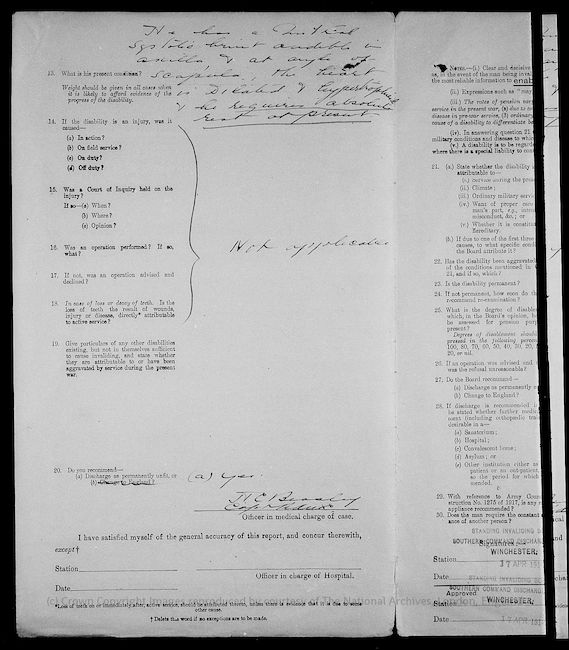 He has a Mitral
Systolic bruit audible in
axilla, & at angle of
scapula, the heart
13. What is his present condition?
is Dilated & hypertrophied
Weight should be given in all cases when
it is likely to afford evidence of the
progress of the disability.
& he requires absolute
rest at present
14. If the disability is an injury, was it
caused—
(a) In action?
(b) On field service?
(c) On duty?
(d) Off duty?
15. Was a Court of Inquiry held on the
injury?
If so—(a) When?
(b) Where?
(c) Opinion?
16. Was an operation performed? If so,
what?
Not applicable
17. If not, was an operation advised and
declined?
18. In case of loss or decay of teeth. Is the
loss of teeth the result of wounds,
injury or disease, directly* attributable
to active service?
19. Give particulars of any other disabilities
existing, but not in themselves sufficient
to cause invaliding, and state whether
they are attributable to or have been
aggravated by service during the present
war.
20. Do you recommend—
(a) Discharge as permanently unfit, or
(a) Yes.
(b) Change to England?
Officer in medical charge of case.
I have satisfied myself of the general accuracy of this report, and concur therewith,
except†
Station
Officer in charge of Hospital.
Date
(c) Crown Copyright Images reproduced by courtesy of The National Archives, London,
*Loss of teeth on or immediately after, active service, should be attributed thereto, unless there is evidence that it is due to some
other cause.
† Delete this word if no exceptions are to be made.
NOTES.—(i.) Clear and decisive
as, in the event of the man being
the most reliable information to
(ii.) Expressions such as "may
(iii.) The rates of pension
service in the present war, (2) due to
disease in pre-war service, (3) ordinary
cause of a disability to differentiate
(iv.) In answering question 21
military conditions and disease to
(v.) A disability is to be
where there is a special liability to
21. (a) State whether the disability
attributable to—
(i.) Service during the
(ii.) Climate;
(iii.) Ordinary military
(iv.) Want of proper
man's part, e.g.,
misconduct, &c.; or
(v.) Whether it is
Hereditary.
(b) If due to one of the first three
causes, to what specific
the Board attribute it?
22. Has the disability been aggravated
of the conditions mentioned in
21, and if so, which?
23. Is the disability permanent?
24. If not permanent, how soon do
recommend re-examination?
25. What is the degree of
which, in the Board's opinion,
be assessed for pension
present?
Degrees of disablement
expressed in the following
100, 80, 70, 60, 50, 40, 30,
20, or nil.
26. If an operation was advised and
was the refusal unreasonable?
27. Do the Board recommend—
(a) Discharge as permanently
(b) Change to England?
28. If discharge is recommended
be stated whether further
ment (including orthopedic
desirable in a—
(a) Sanatorium;
(b) Hospital;
(c) Convalescent home;
(d) Asylum; or
(e) Other institution either as
patient or an out-patient,
so the period for which
mended.
29. With reference to Army
struction No. 1275 of 1917, is any
appliance recommended?
30. Does the man require the constant
ance of another person?
STANDING INVALIDING
SOUTHERN COMMAND
Signatures
WINCHESTER.
Station
17 APR
Date
STANDING INVALIDING
SOUTHERN COMMAND
Approved
WINCHESTER.
Station
Date
17 APR